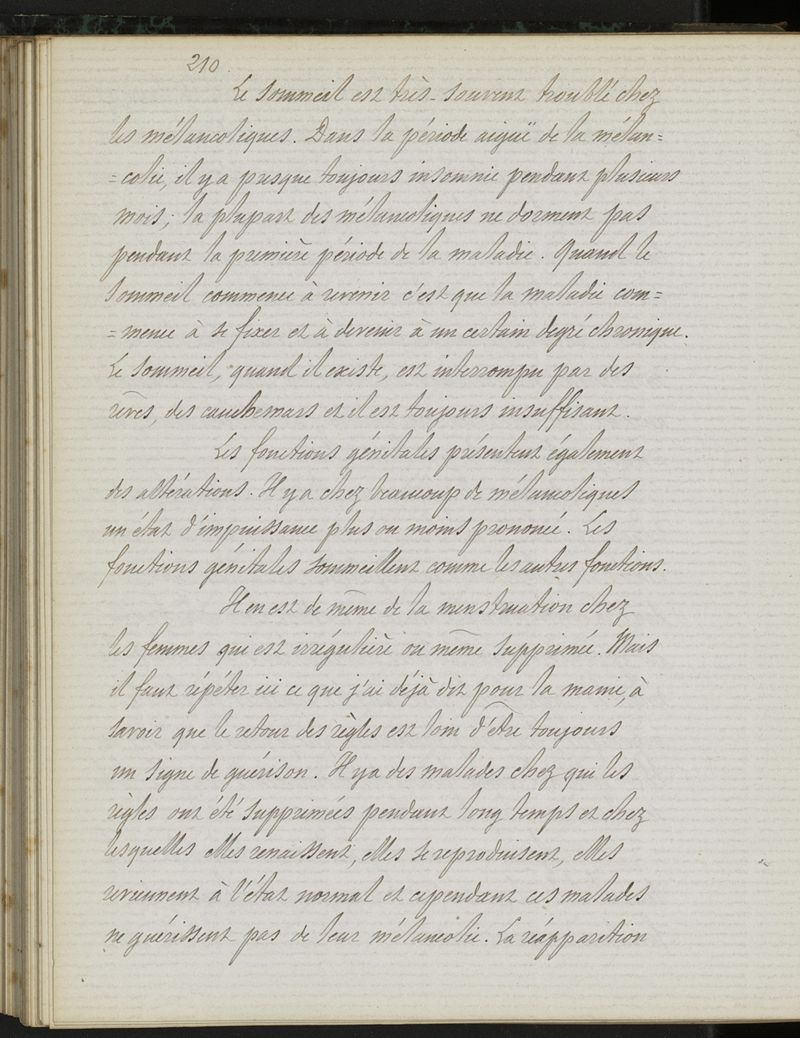 210
Le sommeil est très-souvent troublé chez
les mélancoliques. Dans la période aiguë de la mélan=
=colie, il y a presque toujours insomnie pendant plusieurs
mois; la plupart des mélancoliques ne dorment pas
pendant la première période de la maladie. Quand le
sommeil commence à revenir c'est que la maladie com=
=mence à se fixer et à devenir à un certain degré chronique.
Le sommeil, quand il existe, est interrompu par des
rêves, des cauchemars et il est toujours insuffisant.
Les fonctions génitales présentent également
des altérations. Il y a chez beaucoup de mélancoliques
un état d'impuissance plus ou moins prononcé. Les
fonctions génitales sommeillent comme les autres fonctions.
Il en est de même de la menstruation chez
les femmes qui est irrégulière ou même supprimée. Mais
il faut répéter ici ce que j'ai déjà dit pour la manie, à
savoir que le retour des règles est loin d'être toujours
un signe de guérison. Il y a des malades chez qui les
règles ont été supprimées pendant long temps et chez
lesquelles elles renaissent, elles se reproduisent, elles
reviennent à l'état normal et cependant ces malades
ne guérissent pas de leur mélancolie. La réapparition